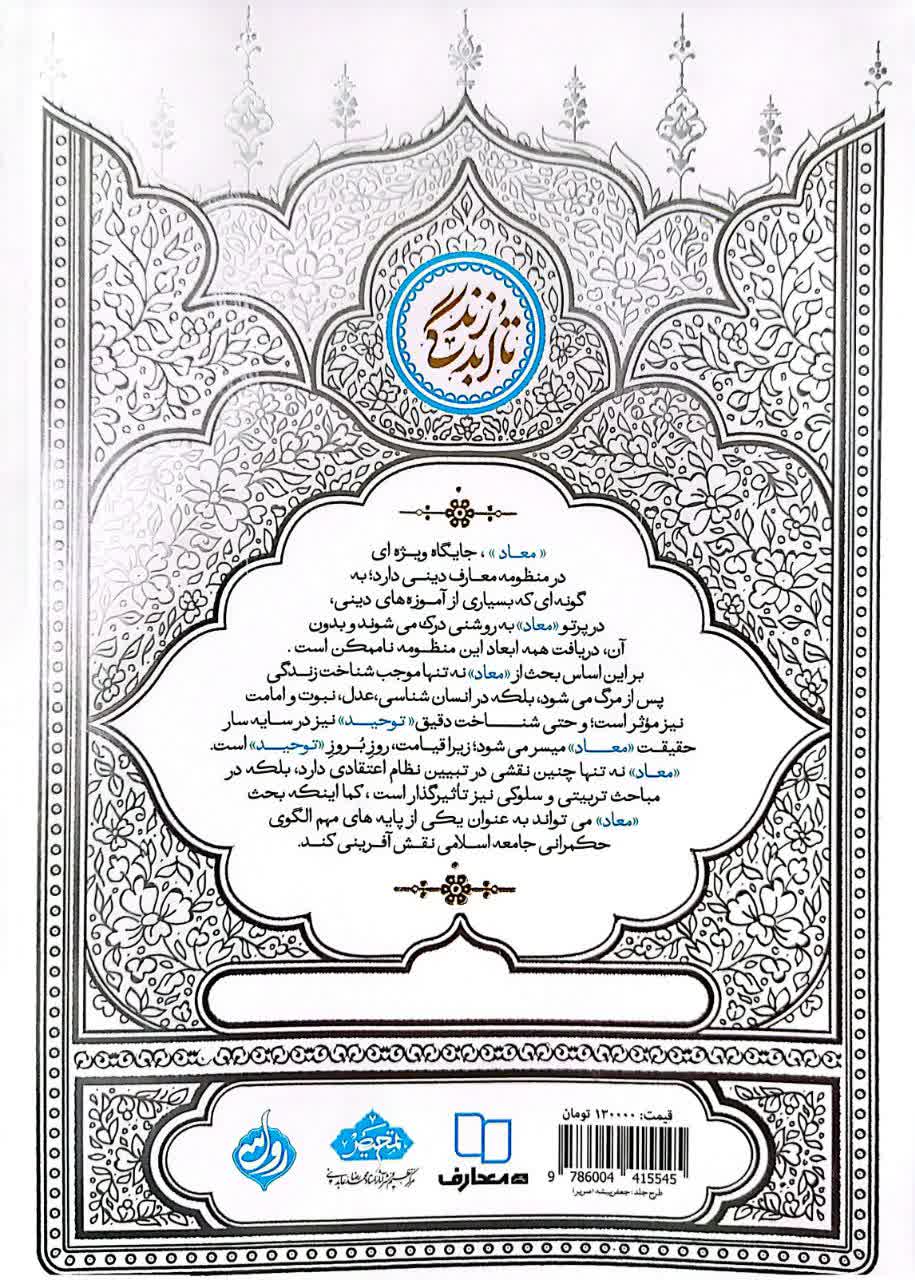 تا ابد زندگی
«معاد»، جایگاه ویژه ای
در منظومه معارف دینی دارد؛ به
گونه ای که بسیاری از آموزه های دینی،
در پرتو «معاد» به روشنی درک می شوند و بدون
آن، دریافت همه ابعاد این منظومه ناممکن است .
بر این اساس بحث از «معاد» نه تنها موجب شناخت زندگی
پس از مرگ می شود، بلکه در انسان شناسی، عدل، نبوت و امامت
نیز مؤثر است؛ و حتی شناخت دقیق «توحید» نیز در سایه سار
حقیقت «معاد» میسر می شود؛ زیرا قیامت، روزِ بُروزِ «توحید» است.
«معاد» نه تنها چنین نقشی در تبیین نظام اعتقادی دارد، بلکه در
مباحث تربیتی و سلوکی نیز تأثیرگذار است ، کما اینکه بحث
«معاد» می تواند به عنوان یکی از پایه های مهم الگوی
حکمرانی جامعه اسلامی نقش آفرینی کند.
قیمت: ۱۳۰۰۰۰ تومان
9 786004 415545
طرح جلد:
معارف
تمحیص